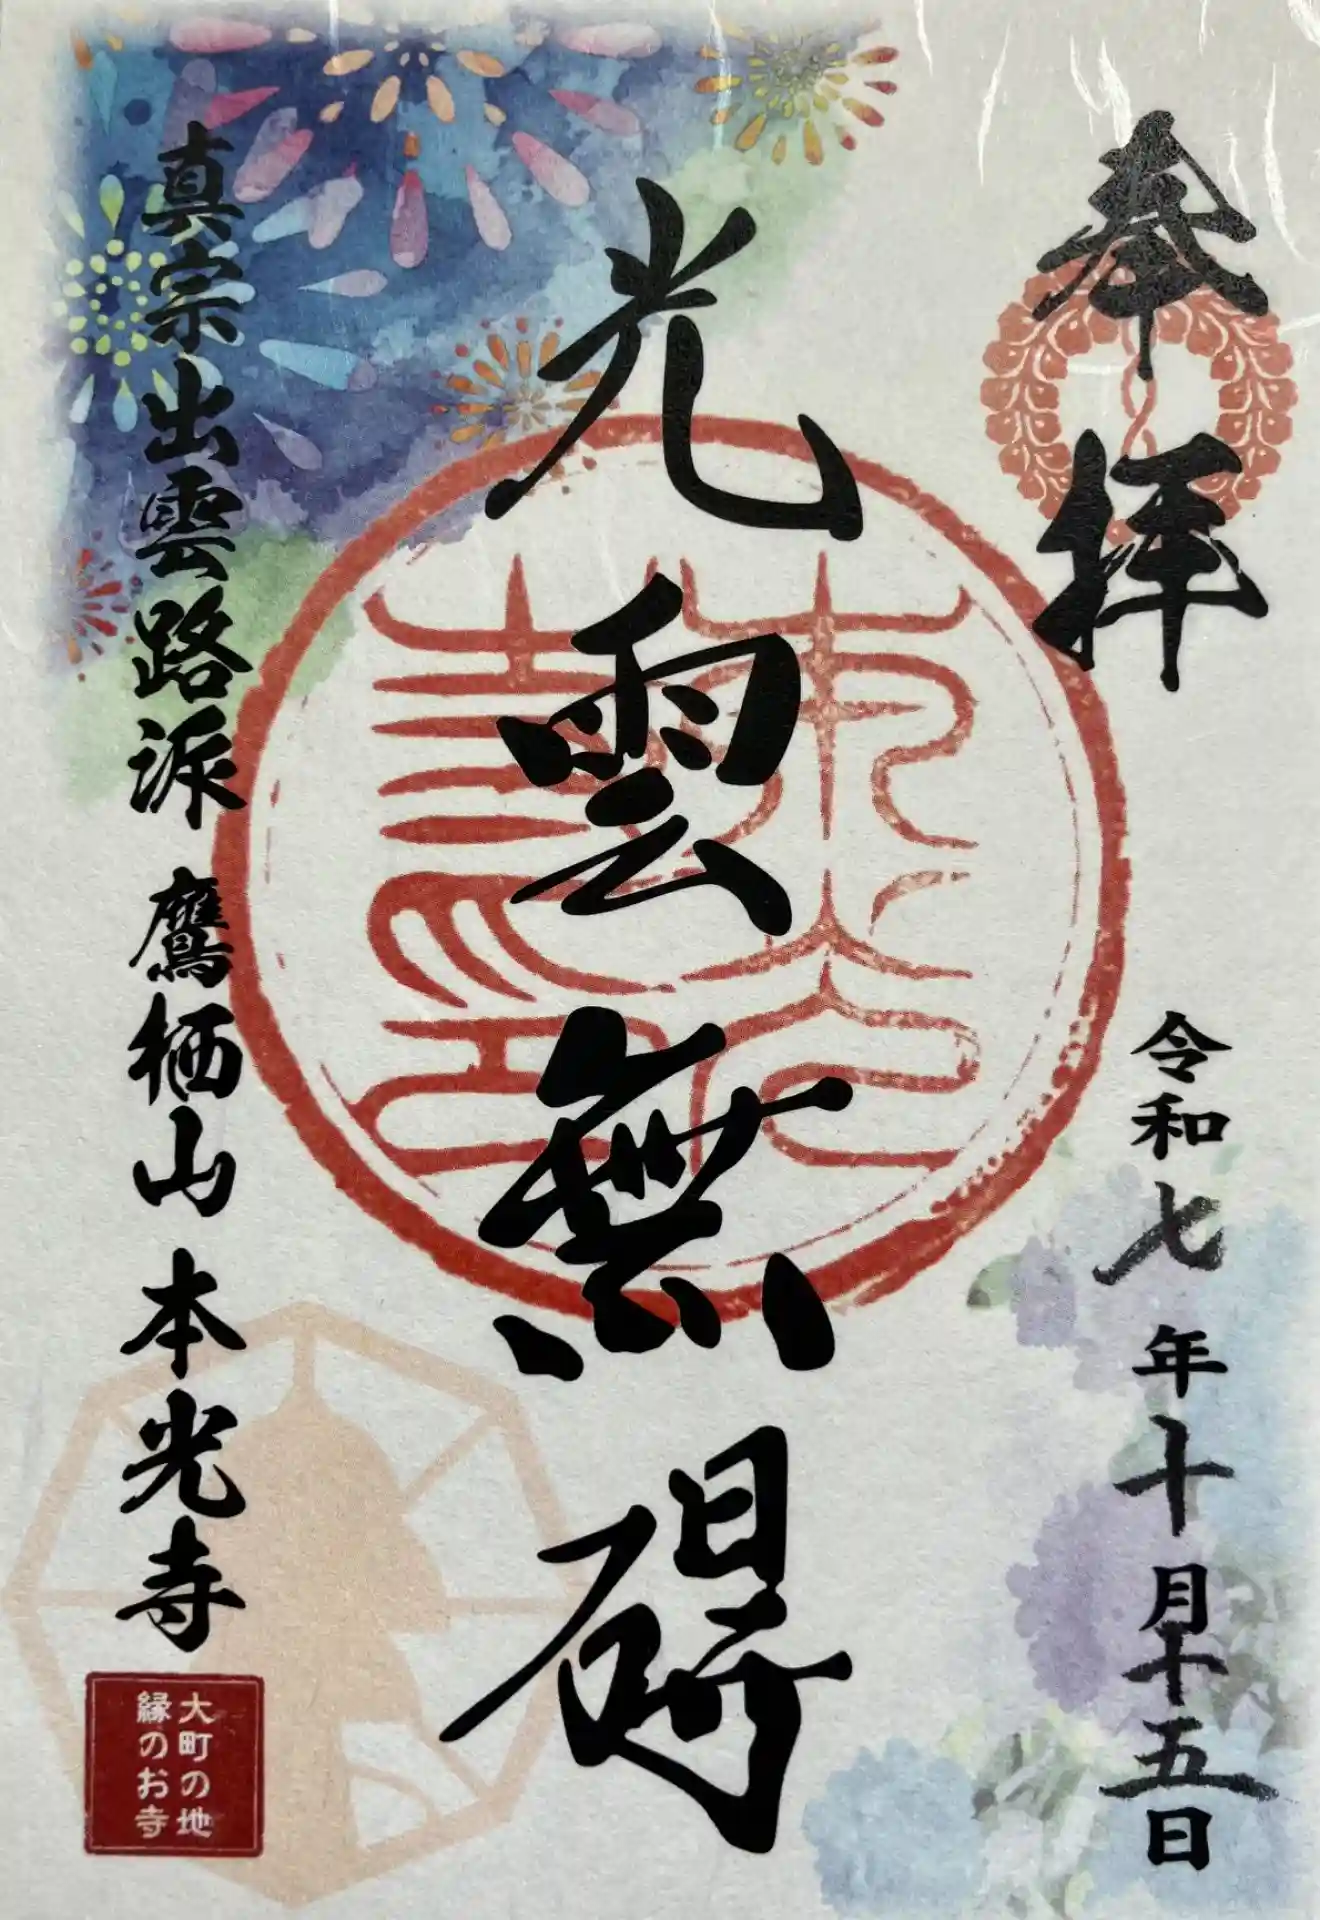 奉拝
令和七年十月十五日
光雲無碍
真宗出雲路派 鷹栖山 本光寺
大町の地
縁のお寺